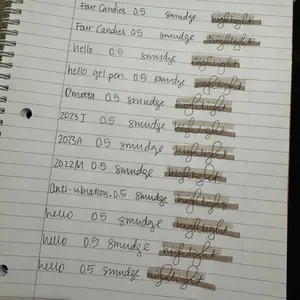 Four Candies 0.5 smudge highlight
Four Candies 0.5 smudge highlight
hello 0.5 smudge highlight
hello gel pen. 0.5 smudge highlight
Ometta 0.5 smudge highlight
2023 J 0.5 smudge highlight
2023A 0.5 smudge highlight
2022M 0.5 smudge highlight
Anti-vibration. 0.5 smudge highlight
hello 0.5 smudge highlight
hello 0.5 smudge highlight
hello 0.5 smudge highlight